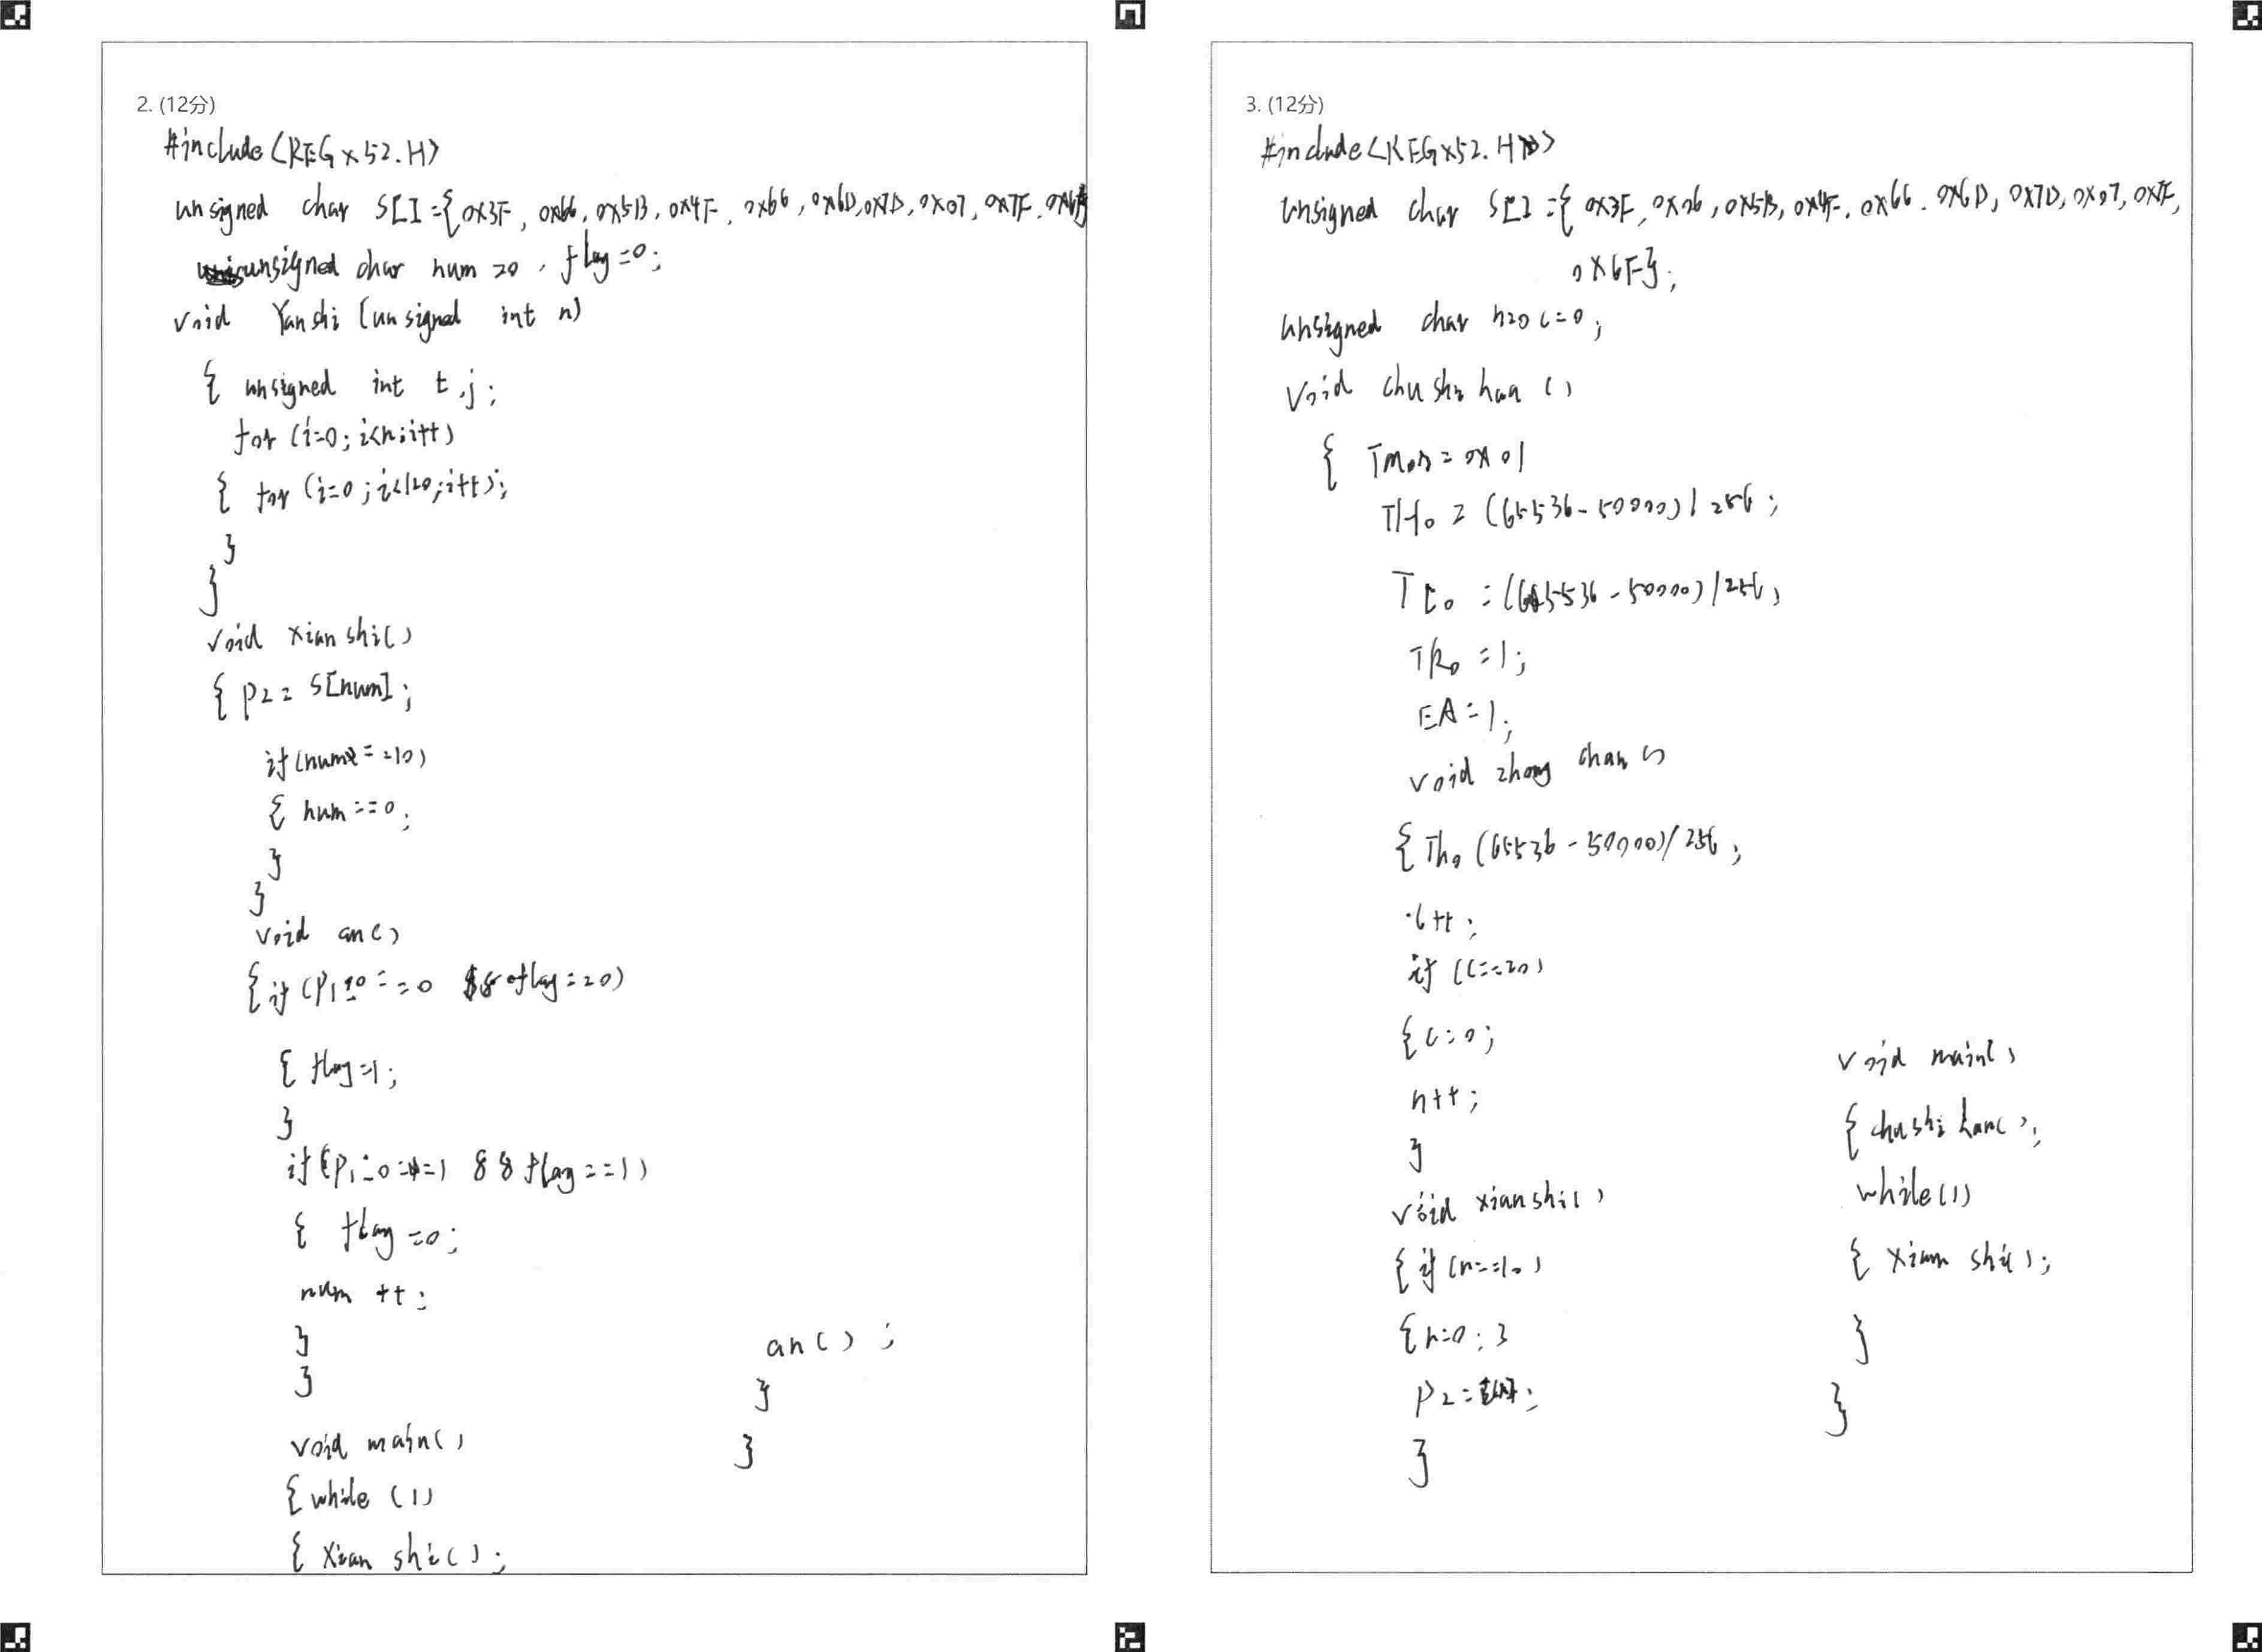 2. (12分)
#include<REGx52.H>
unsigned char S[]={0x3F, 0x66, 0x5B, 0x4F, 0x66, 0x6D, 0x7D, 0x07, 0x7F, 0x6F
unsigned char num=0, flag=0;
void Yanshi (unsigned int n)
{ unsigned int t,j;
for (i=0; i<n; i++)
{ for (i=0; i<120; i++);
}
}
void xianshi()
{ P2= S[num];
if (num==10)
{ num==0;
}
}
void an()
{ if (P1_0==0 && flag=20)
{ flag=1;
}
if (P1_0==1 && flag==1)
{ flag=0;
num ++;
}
}
void main()
{ while (1)
{ xianshi();
an();
}
}
3. (12分)
#include<REGx52.H>
unsigned char S[]={ 0x3F, 0x06, 0x5B, 0x4F, 0x66, 0x6D, 0x7D, 0x07, 0x7F,
0x6F};
unsigned char n=0 c=0;
void chushihua ()
{ Tmod=0x01
TH0 = (65536-50000)/256;
TL0 =(65536-50000)/256;
TR0=1;
EA=1;
void zhong chan()
{ Th0 (65536-50000)/256;
c++;
if (c==20)
{ c=0;
n++;
}
void xianshi()
{ if (n==10)
{ n=0; }
P2=
}
void main()
{ chushihan();
while(1)
{ xianshi();
}
}